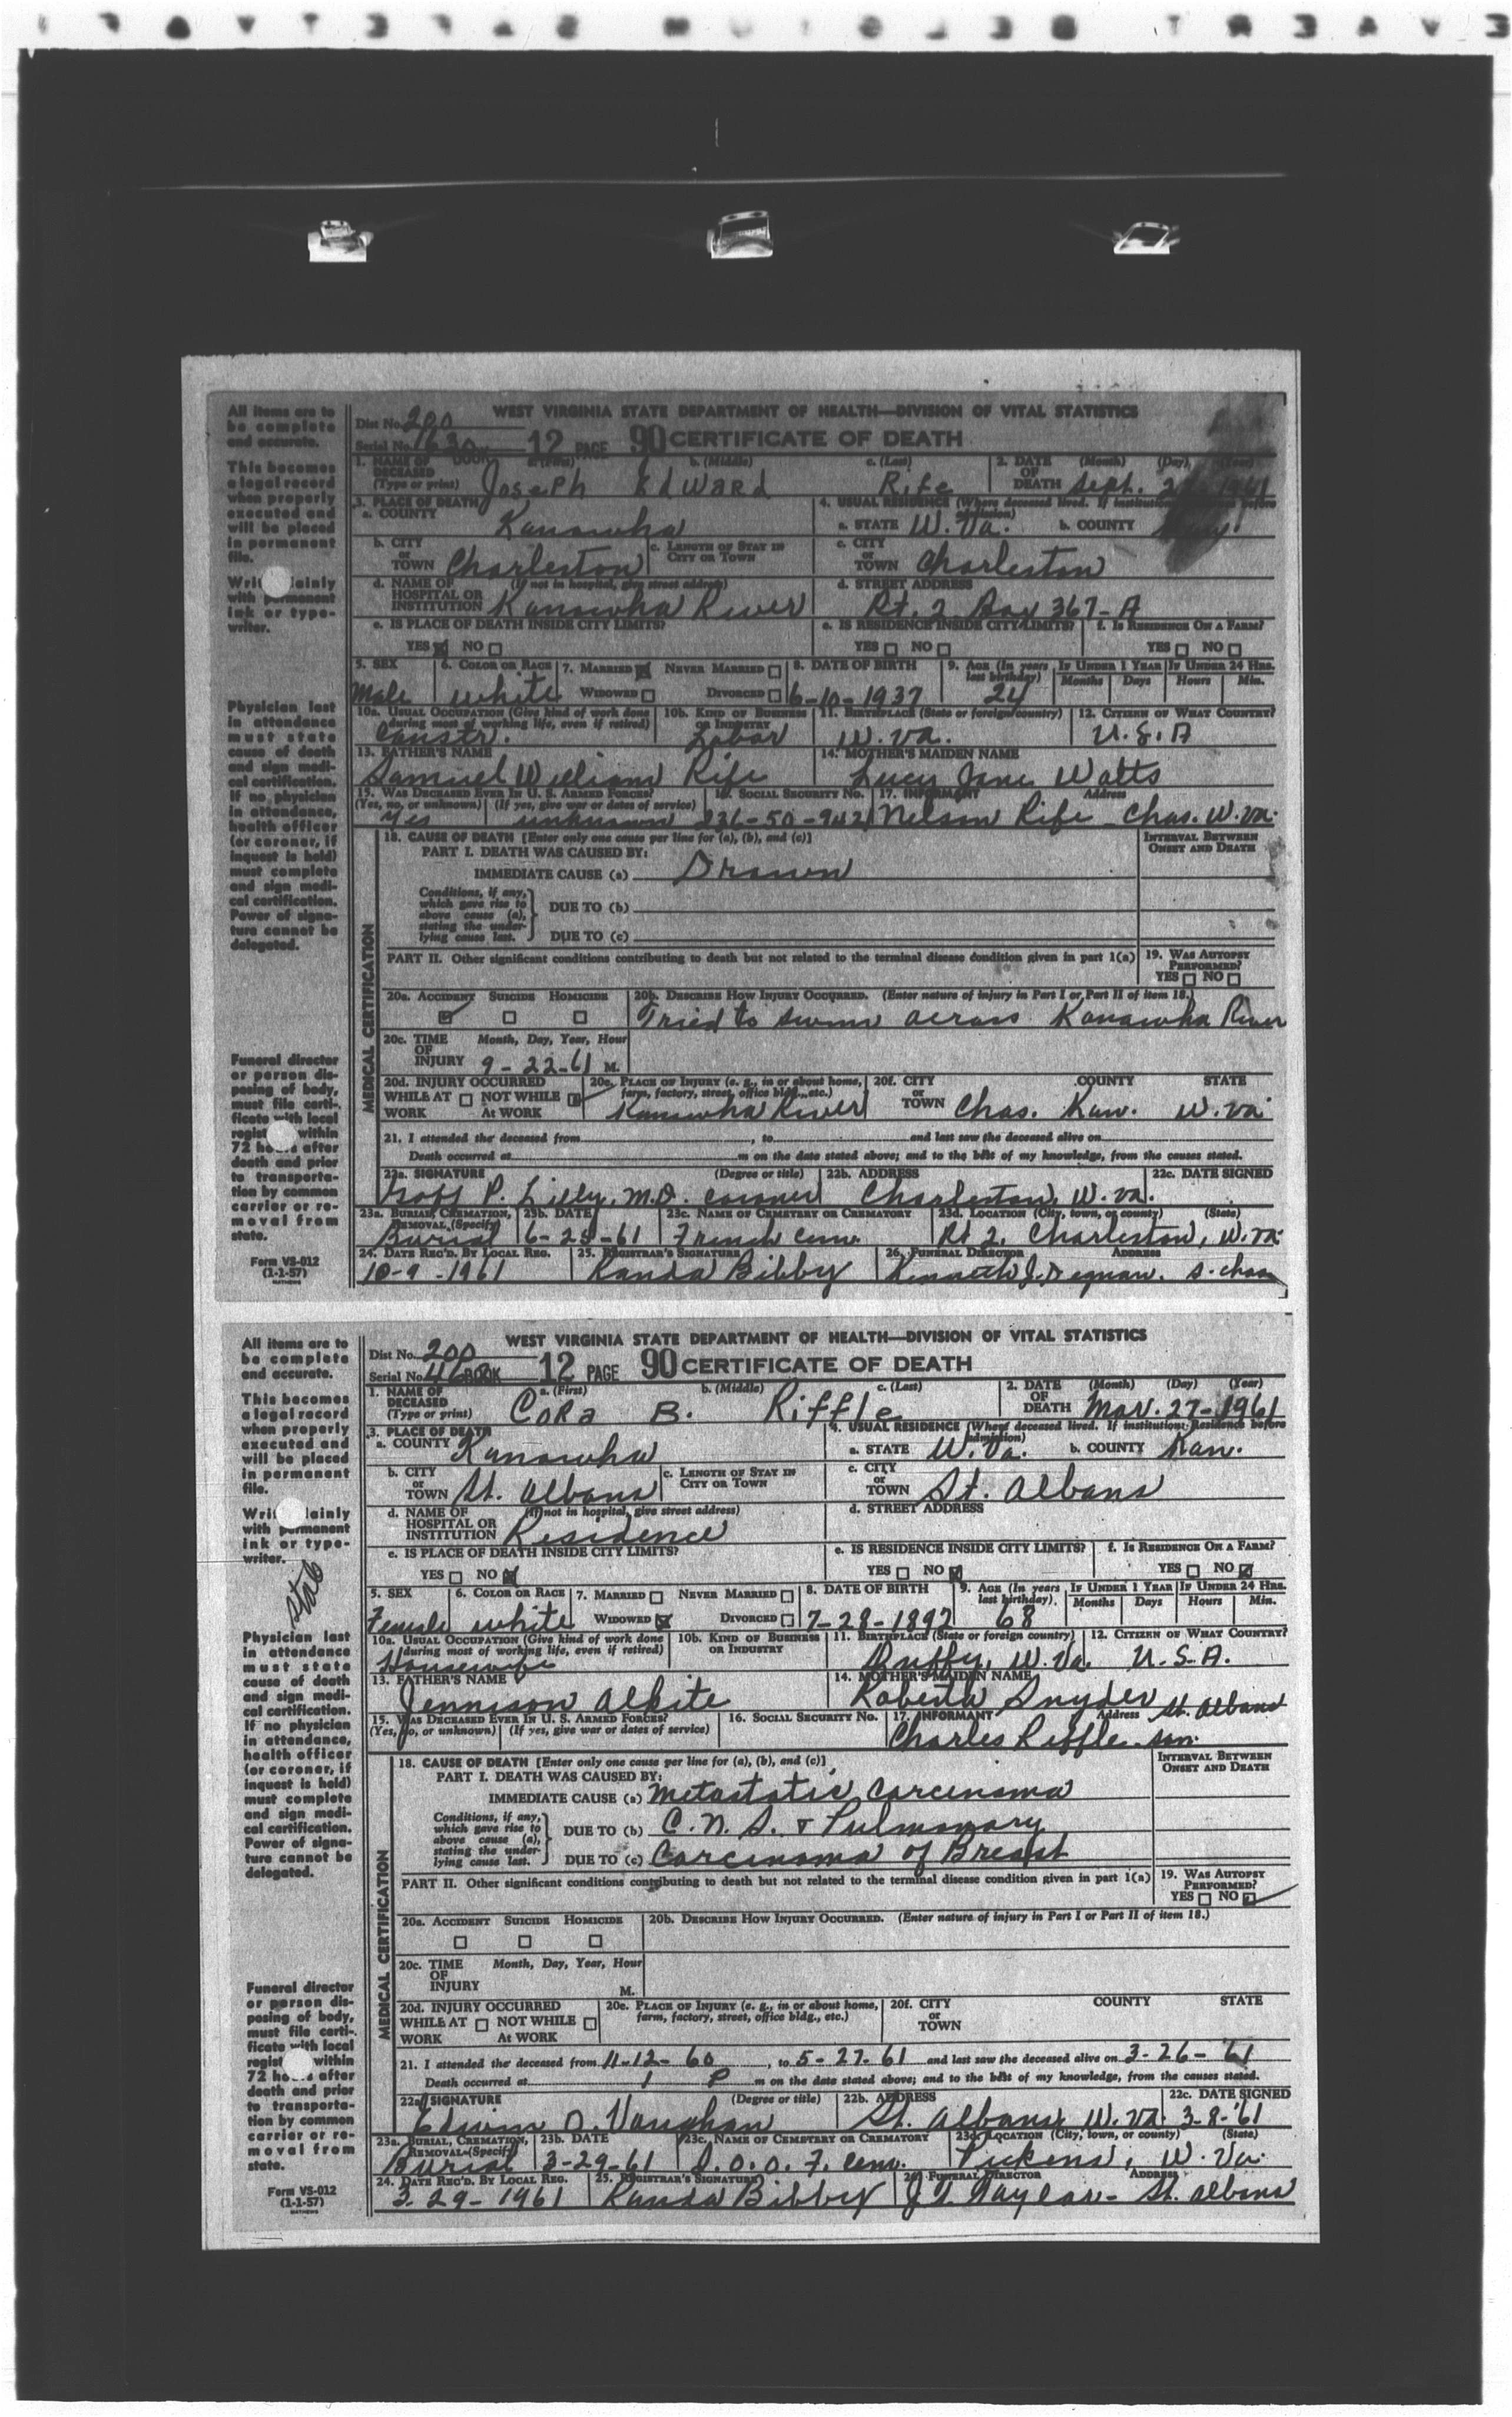 All items are to be complete and accurate.
This becomes a legal record when properly executed and will be placed in permanent file.
with permanent ink or typewriter.
Physician last in attendance must state cause of death and sign medical certification. If no physician in attendance, health officer (or coroner, if inquest is held) must complete and sign medical certification. Power of signature cannot be delegated.
Funeral director or person disposing of body, must file certificate with local within 72 after death and prior to transportation by common carrier or removal from state.
Form VS-012
(1-1-57)
WEST VIRGINIA STATE DEPARTMENT OF HEALTH—DIVISION OF VITAL STATISTICS
Dist No. 200
Serial No. BOOK 12 PAGE 90 CERTIFICATE OF DEATH
1. NAME OF DECEASED (Type or print) a. (First) b. (Middle) c. (Last) Joseph Edward Rife 2. DATE OF DEATH (Month) (Day) (Year) Sept. 1961
3. PLACE OF DEATH a. COUNTY Kanawha 4. USUAL RESIDENCE (Where deceased lived. If institution: Residence before admission) a. STATE W. Va. b. COUNTY
b. CITY or TOWN Charleston c. LENGTH OF STAY IN CITY OR TOWN c. CITY or TOWN Charleston
d. NAME OF HOSPITAL OR INSTITUTION (If not in hospital, give street address) Kanawha River d. STREET ADDRESS Rt. 2 Box 367-A
e. IS PLACE OF DEATH INSIDE CITY LIMITS? e. IS RESIDENCE INSIDE CITY LIMITS? f. IS RESIDENCE ON A FARM?
YES NO YES NO YES NO
5. SEX Male 6. COLOR OR RACE white 7. MARRIED NEVER MARRIED WIDOWED DIVORCED 8. DATE OF BIRTH 6-10-1937 9. AGE (In years last birthday) 24 IF UNDER 1 YEAR Months Days IF UNDER 24 HRS. Hours Min.
10a. USUAL OCCUPATION (Give kind of work done during most of working life, even if retired) Constr. 10b. KIND OF BUSINESS OR INDUSTRY Labor 11. BIRTHPLACE (State or foreign country) W. Va. 12. CITIZEN OF WHAT COUNTRY? U.S.A
13. FATHER'S NAME Samuel William Rife 14. MOTHER'S MAIDEN NAME Lucy Jane Watts
15. WAS DECEASED EVER IN U. S. ARMED FORCES? (Yes, no, or unknown) Yes (If yes, give war or dates of service) unknown 16. SOCIAL SECURITY No. 17. INFORMANT Address Nelson Rife Chas. W. Va.
MEDICAL CERTIFICATION
18. CAUSE OF DEATH [Enter only one cause per line for (a), (b), and (c)] INTERVAL BETWEEN ONSET AND DEATH
PART I. DEATH WAS CAUSED BY:
IMMEDIATE CAUSE (a) Drown
Conditions, if any, which gave rise to above cause (a), stating the underlying cause last. DUE TO (b)
DUE TO (c)
PART II. Other significant conditions contributing to death but not related to the terminal disease condition given in part 1(a) 19. WAS AUTOPSY PERFORMED? YES NO
20a. ACCIDENT SUICIDE HOMICIDE 20b. DESCRIBE HOW INJURY OCCURRED. (Enter nature of injury in Part I or Part II of item 18.)
Tried to swim across Kanawha River
20c. TIME OF INJURY Month, Day, Year, Hour 9-22-61 M.
20d. INJURY OCCURRED WHILE AT WORK NOT WHILE AT WORK 20e. PLACE OF INJURY (e. g., in or about home, farm, factory, street, office bldg., etc.) Kanawha River 20f. CITY or TOWN COUNTY STATE Chas. Kan. W. Va
21. I attended the deceased from , to and last saw the deceased alive on
Death occurred at m on the date stated above; and to the best of my knowledge, from the causes stated.
22a. SIGNATURE (Degree or title) P. Lilly, M.D. coroner 22b. ADDRESS Charleston, W. Va. 22c. DATE SIGNED
23a. BURIAL, CREMATION, REMOVAL (Specify) Burial 23b. DATE 6-25-61 23c. NAME OF CEMETERY OR CREMATORY French Cem. 23d. LOCATION (City, town, or county) (State) Rt 2, Charleston, W. Va.
24. DATE REC'D. BY LOCAL REG. 10-9-1961 25. REGISTRAR'S SIGNATURE Randa Bibby 26. FUNERAL DIRECTOR ADDRESS Kenneth J.
All items are to be complete and accurate.
This becomes a legal record when properly executed and will be placed in permanent file.
with permanent ink or typewriter.
Stat
Physician last in attendance must state cause of death and sign medical certification. If no physician in attendance, health officer (or coroner, if inquest is held) must complete and sign medical certification. Power of signature cannot be delegated.
Funeral director or person disposing of body, must file certificate with local within 72 after death and prior to transportation by common carrier or removal from state.
Form VS-012
(1-1-57)
WEST VIRGINIA STATE DEPARTMENT OF HEALTH—DIVISION OF VITAL STATISTICS
Dist No. 200
Serial No. BOOK 12 PAGE 90 CERTIFICATE OF DEATH
1. NAME OF DECEASED (Type or print) a. (First) b. (Middle) c. (Last) Cora B. Riffle 2. DATE OF DEATH (Month) (Day) (Year) Mar. 27-1961
3. PLACE OF DEATH a. COUNTY Kanawha 4. USUAL RESIDENCE (Where deceased lived. If institution: Residence before admission) a. STATE W. Va. b. COUNTY Kan.
b. CITY or TOWN St. Albans c. LENGTH OF STAY IN CITY OR TOWN c. CITY or TOWN St. Albans
d. NAME OF HOSPITAL OR INSTITUTION (If not in hospital, give street address) Residence d. STREET ADDRESS
e. IS PLACE OF DEATH INSIDE CITY LIMITS? e. IS RESIDENCE INSIDE CITY LIMITS? f. IS RESIDENCE ON A FARM?
YES NO YES NO YES NO
5. SEX Female 6. COLOR OR RACE white 7. MARRIED NEVER MARRIED WIDOWED DIVORCED 8. DATE OF BIRTH 7-28-1892 9. AGE (In years last birthday) 68 IF UNDER 1 YEAR Months Days IF UNDER 24 HRS. Hours Min.
10a. USUAL OCCUPATION (Give kind of work done during most of working life, even if retired) Housewife 10b. KIND OF BUSINESS OR INDUSTRY 11. BIRTHPLACE (State or foreign country) Duffy, W. Va. 12. CITIZEN OF WHAT COUNTRY? U.S.A.
13. FATHER'S NAME Jennison Alkite 14. MOTHER'S MAIDEN NAME Roberta Snyder
15. WAS DECEASED EVER IN U. S. ARMED FORCES? (Yes, no, or unknown) (If yes, give war or dates of service) 16. SOCIAL SECURITY No. 17. INFORMANT Address St. Albans Charles Riffle son.
MEDICAL CERTIFICATION
18. CAUSE OF DEATH [Enter only one cause per line for (a), (b), and (c)] INTERVAL BETWEEN ONSET AND DEATH
PART I. DEATH WAS CAUSED BY:
IMMEDIATE CAUSE (a) Metastatic Carcinoma
Conditions, if any, which gave rise to above cause (a), stating the underlying cause last. DUE TO (b) C.N.S. & Pulmonary
DUE TO (c) Carcinoma of Breast
PART II. Other significant conditions contributing to death but not related to the terminal disease condition given in part 1(a) 19. WAS AUTOPSY PERFORMED? YES NO
20a. ACCIDENT SUICIDE HOMICIDE 20b. DESCRIBE HOW INJURY OCCURRED. (Enter nature of injury in Part I or Part II of item 18.)
20c. TIME OF INJURY Month, Day, Year, Hour M.
20d. INJURY OCCURRED WHILE AT WORK NOT WHILE AT WORK 20e. PLACE OF INJURY (e. g., in or about home, farm, factory, street, office bldg., etc.) 20f. CITY or TOWN COUNTY STATE
21. I attended the deceased from 11-12-60, to 5-27-61 and last saw the deceased alive on 3-26-'61
Death occurred at 1 P m on the date stated above; and to the best of my knowledge, from the causes stated.
22a. SIGNATURE (Degree or title) Edwin D. Vaughan 22b. ADDRESS St. Albans, W. Va. 22c. DATE SIGNED 3-8-'61
23a. BURIAL, CREMATION, REMOVAL (Specify) Burial 23b. DATE 3-29-61 23c. NAME OF CEMETERY OR CREMATORY I.O.O.F. Cem. 23d. LOCATION (City, town, or county) (State) Pickens, W. Va.
24. DATE REC'D. BY LOCAL REG. 3-29-1961 25. REGISTRAR'S SIGNATURE Randa Bibby 26. FUNERAL DIRECTOR ADDRESS St. Albans